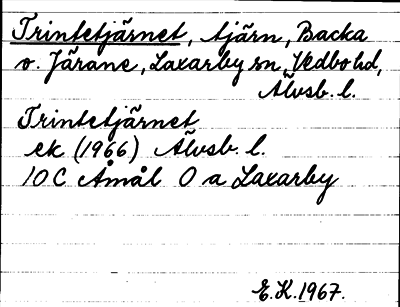 Trintetjärnet, tjärn, Backa
o. Järane, Laxarby sn, Vedbo hd,
Älvsb. l.
Trintetjärnet
ek (1966) Älvsb. l.
10C Åmål O a Laxarby
E.K. 1967.